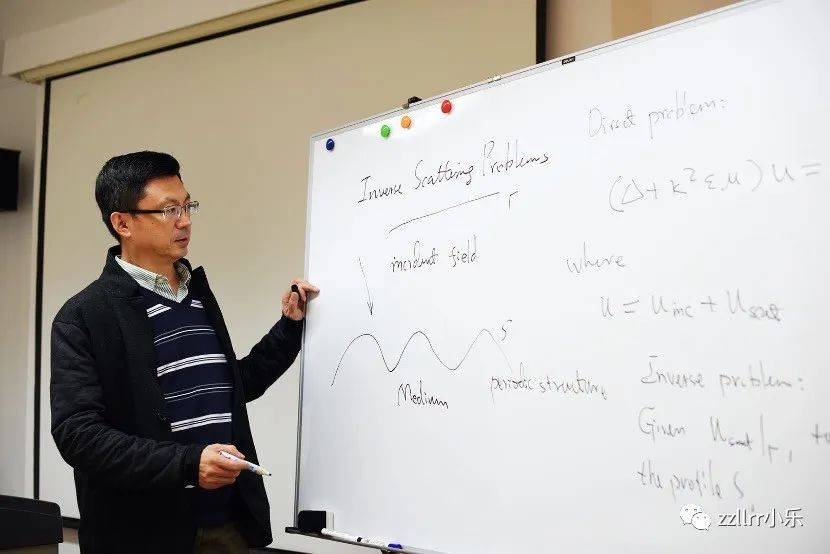 Inverse Scattering Problems
Γ
incident field
S
Medium
periodic structure
Direct problem:
(Δ + k² ε μ) u =
where
u = u inc + u scat
Inverse problem:
Given u scat|Γ, to
the profile S
zzllrr小乐